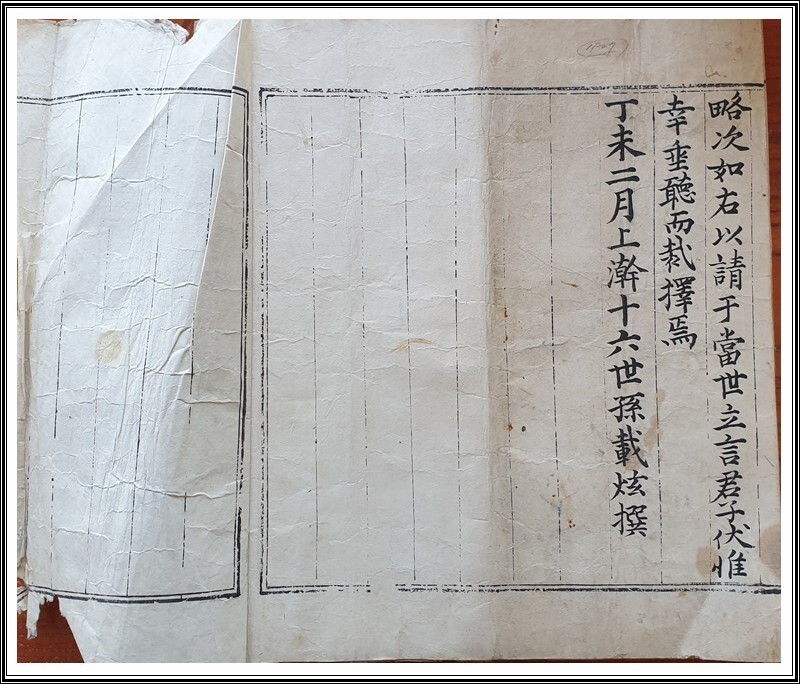 略次如右以請于當世立言君子伏惟
幸垂聽而裁擇焉
丁未二月上澣十六世孫載炫撰